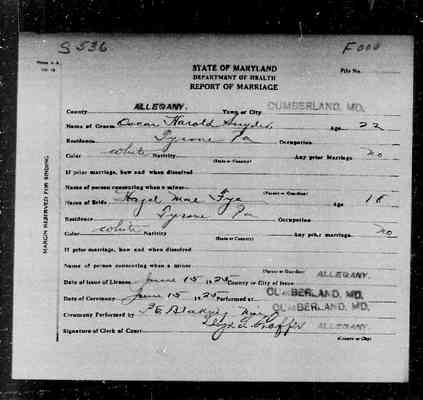 S 536 F 000
STATE OF MARYLAND
DEPARTMENT OF HEALTH
REPORT OF MARRIAGE
File No.
MARGIN RESERVED FOR BINDING
County ALLEGANY. Town or City CUMBERLAND, MD.
Name of Groom Oscar Harold Snyder Age 22
Residence Tyrone Pa Occupation
Color white Nativity (State or Country) Any prior Marriage no
If prior marriage, how and when dissolved
Name of person consenting when a minor (Parent or Guardian)
Name of Bride Hazel Mae Fye Age 18
Residence Tyrone Pa Occupation
Color white Nativity (State or Country) Any prior marriage no
If prior marriage, how and when dissolved
Name of person consenting when a minor (Parent or Guardian)
Date of Issue of License June 15 1925 County or City of Issue ALLEGANY.
Date of Ceremony June 15 1925 Performed at CUMBERLAND, MD.
Ceremony Performed by CUMBERLAND, MD.
Signature of Clerk of Court ALLEGANY.
(County or City)